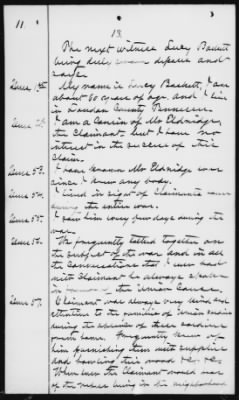 11.
13.
The next witness Lucy Baskett
being duly sworn deposes and
says.
Answ. 1st. My name is Lucy Baskett, I am
about 50 years of age and I live
in County Tennessee.
Answ. 2d. I am a Cousin of Mr Eldridge,
the Claimant, but I have no
interest in the success of this
Claim.
Answ. 53. I have known Mr Eldridge ever
since I knew any body.
Answ. 54. I lived in sight of Claimants
during the entire war.
Answ. 55. I saw him every few days during the
war.
Answ. 56. We frequently talked together on
the subject of the war and in all
the Conversations that I ever had
with Claimant he always spoke
in the Union Cause.
Answ. 57. Claimant was always very kind and
attentive to the families of Union
during the absence of these
from home. Frequently knew of
him furnishing them with supplies
and hauling their wood &c, &c.
When ever the Claimant would hear
of the being in the neighborhood